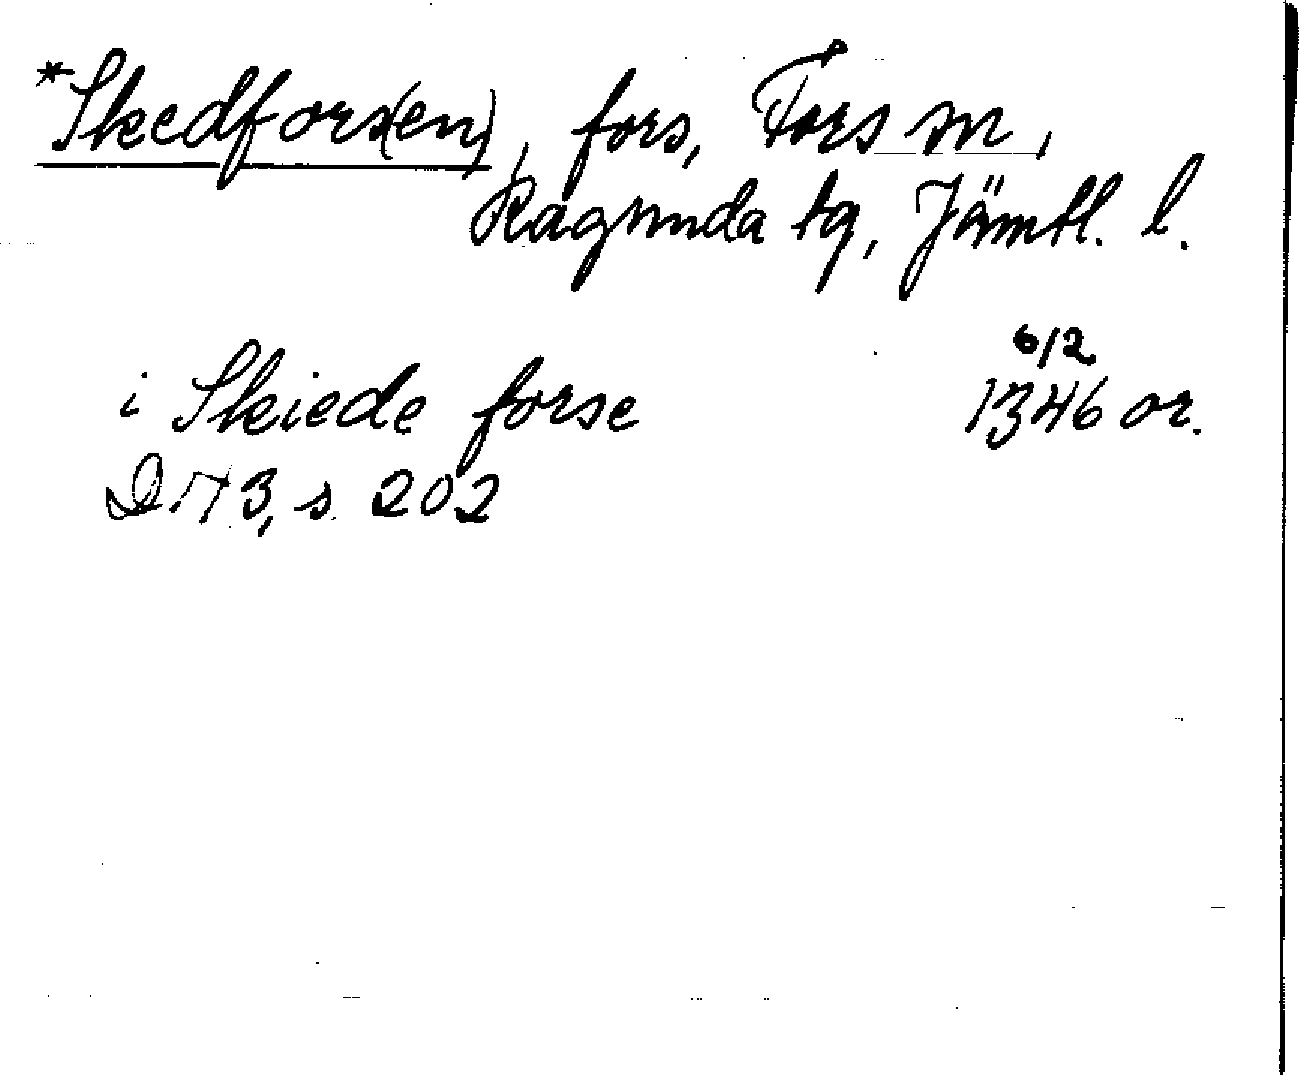 *Skedfors(en), fors, Fors sn,
Ragunda tg, Jämtl. l.
6/2
i Skiede forse 1346 or.
DN 3, s 202